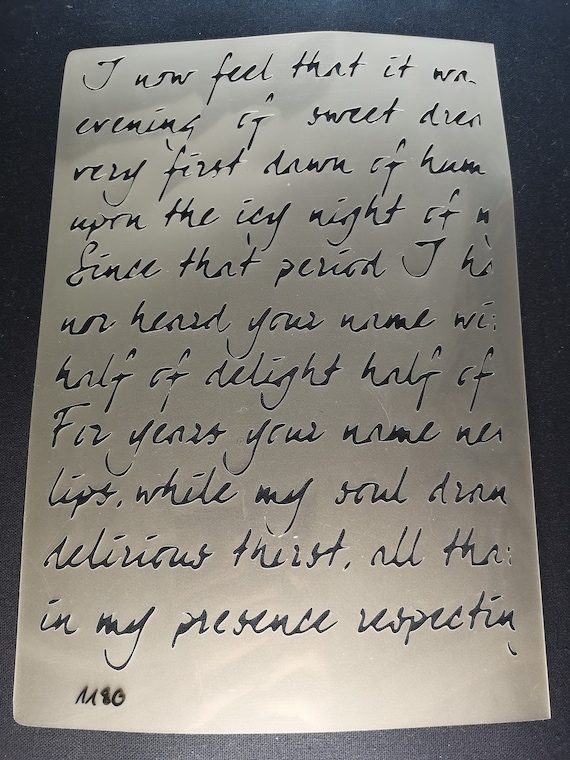 I now feel that it wa
evening of sweet drea
very first dawn of hum
upon the icy night of
Since that period I
nor heard your name wi
half of delight half of
For years your name
lips, while my soul dran
delirious thirst, all tha
in my presence respectin
1180